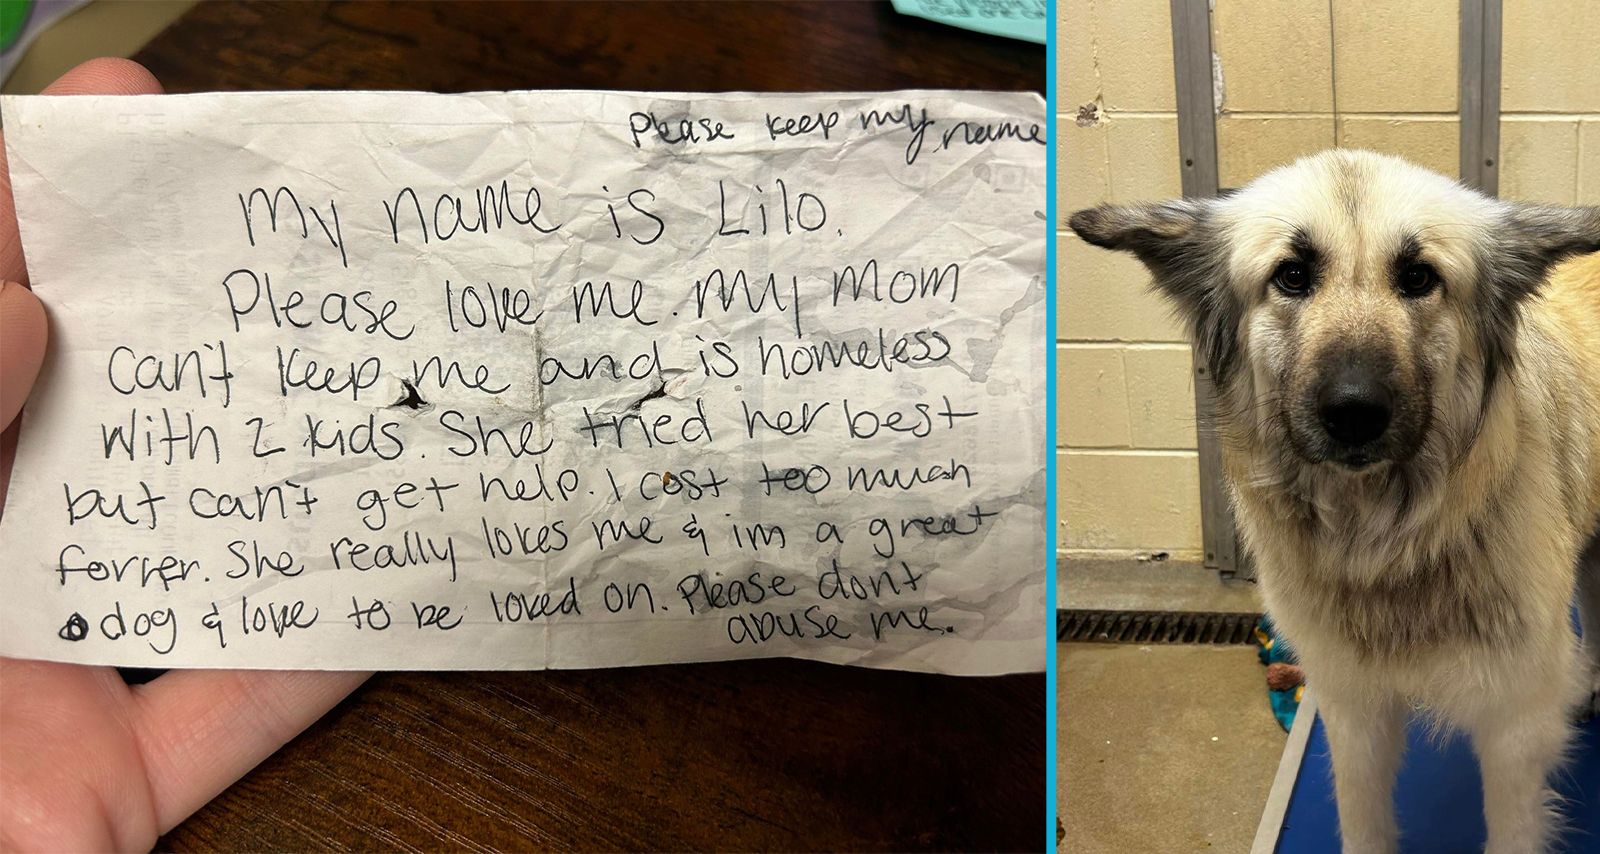 Please keep my name
My name is Lilo.
Please love me. My mom
can't keep me and is homeless
with 2 kids. She tried her best
but can't get help. I cost too much
for her. She really loves me & im a great
dog & love to be loved on. Please dont
abuse me.